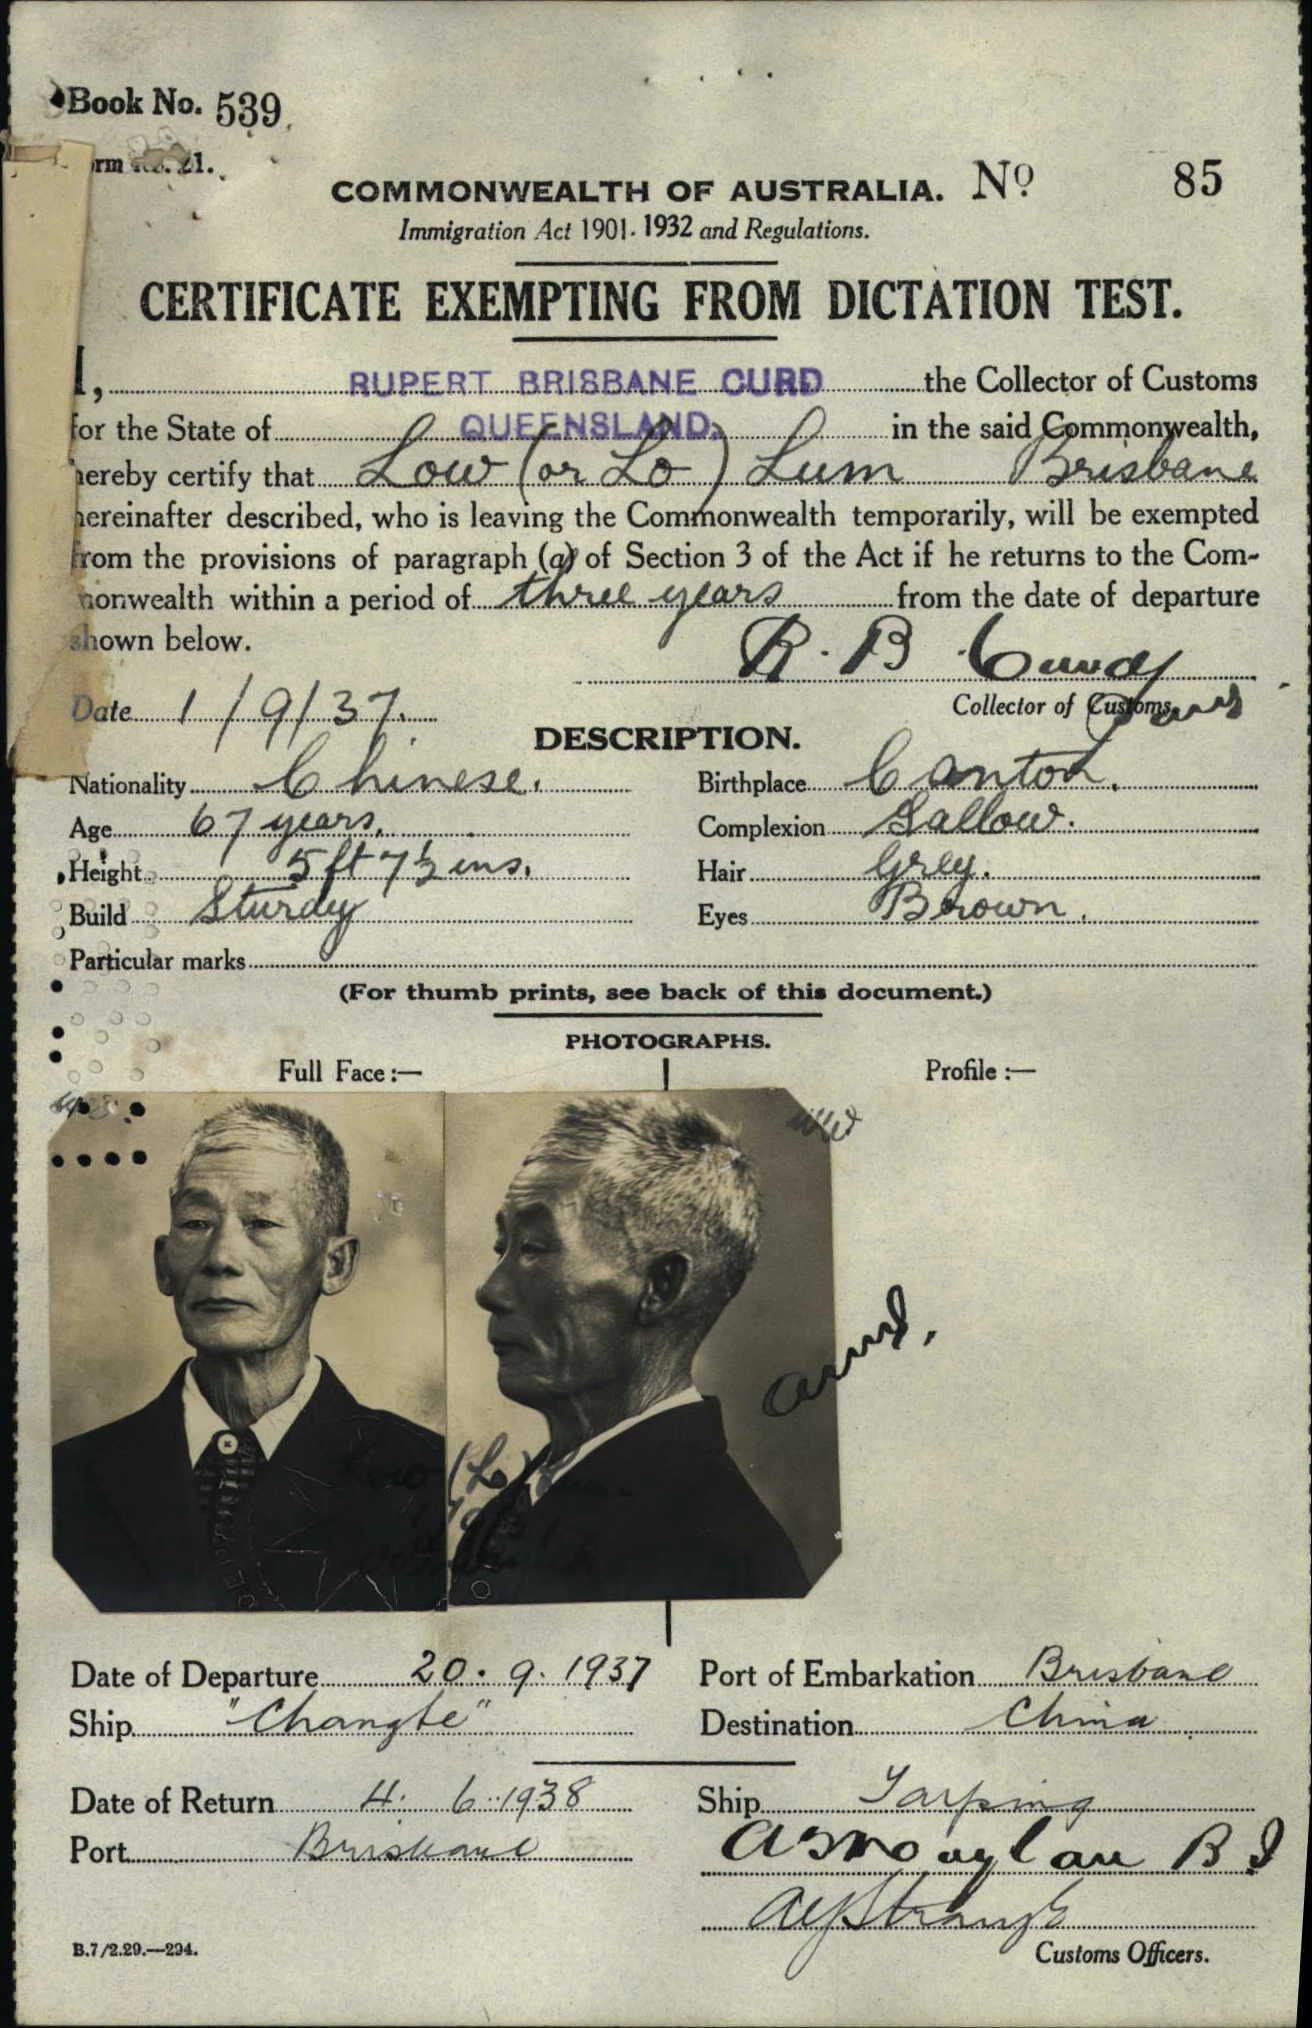 Book No. 539
Form No. 21.
COMMONWEALTH OF AUSTRALIA. No. 85
Immigration Act 1901-1932 and Regulations.
CERTIFICATE EXEMPTING FROM DICTATION TEST.
I, RUPERT BRISBANE CURD the Collector of Customs
for the State of QUEENSLAND. in the said Commonwealth,
hereby certify that Low (or Lo) Lum Brisbane
hereinafter described, who is leaving the Commonwealth temporarily, will be exempted
from the provisions of paragraph (a) of Section 3 of the Act if he returns to the Com-
monwealth within a period of three years from the date of departure
shown below.
R. B. Curd
Date 1/9/37. Collector of Customs
DESCRIPTION.
Nationality Chinese. Birthplace Canton.
Age 67 years. Complexion Sallow.
Height 5 ft 7½ ins. Hair Grey.
Build Sturdy Eyes Brown.
Particular marks
(For thumb prints, see back of this document.)
PHOTOGRAPHS.
Full Face:— Profile:—
Low (Lo)
Date of Departure 20. 9. 1937 Port of Embarkation Brisbane
Ship "Changte" Destination China
Date of Return 4. 6. 1938 Ship Taiping
Port Brisbane
B.7/2.29.—294. Customs Officers.